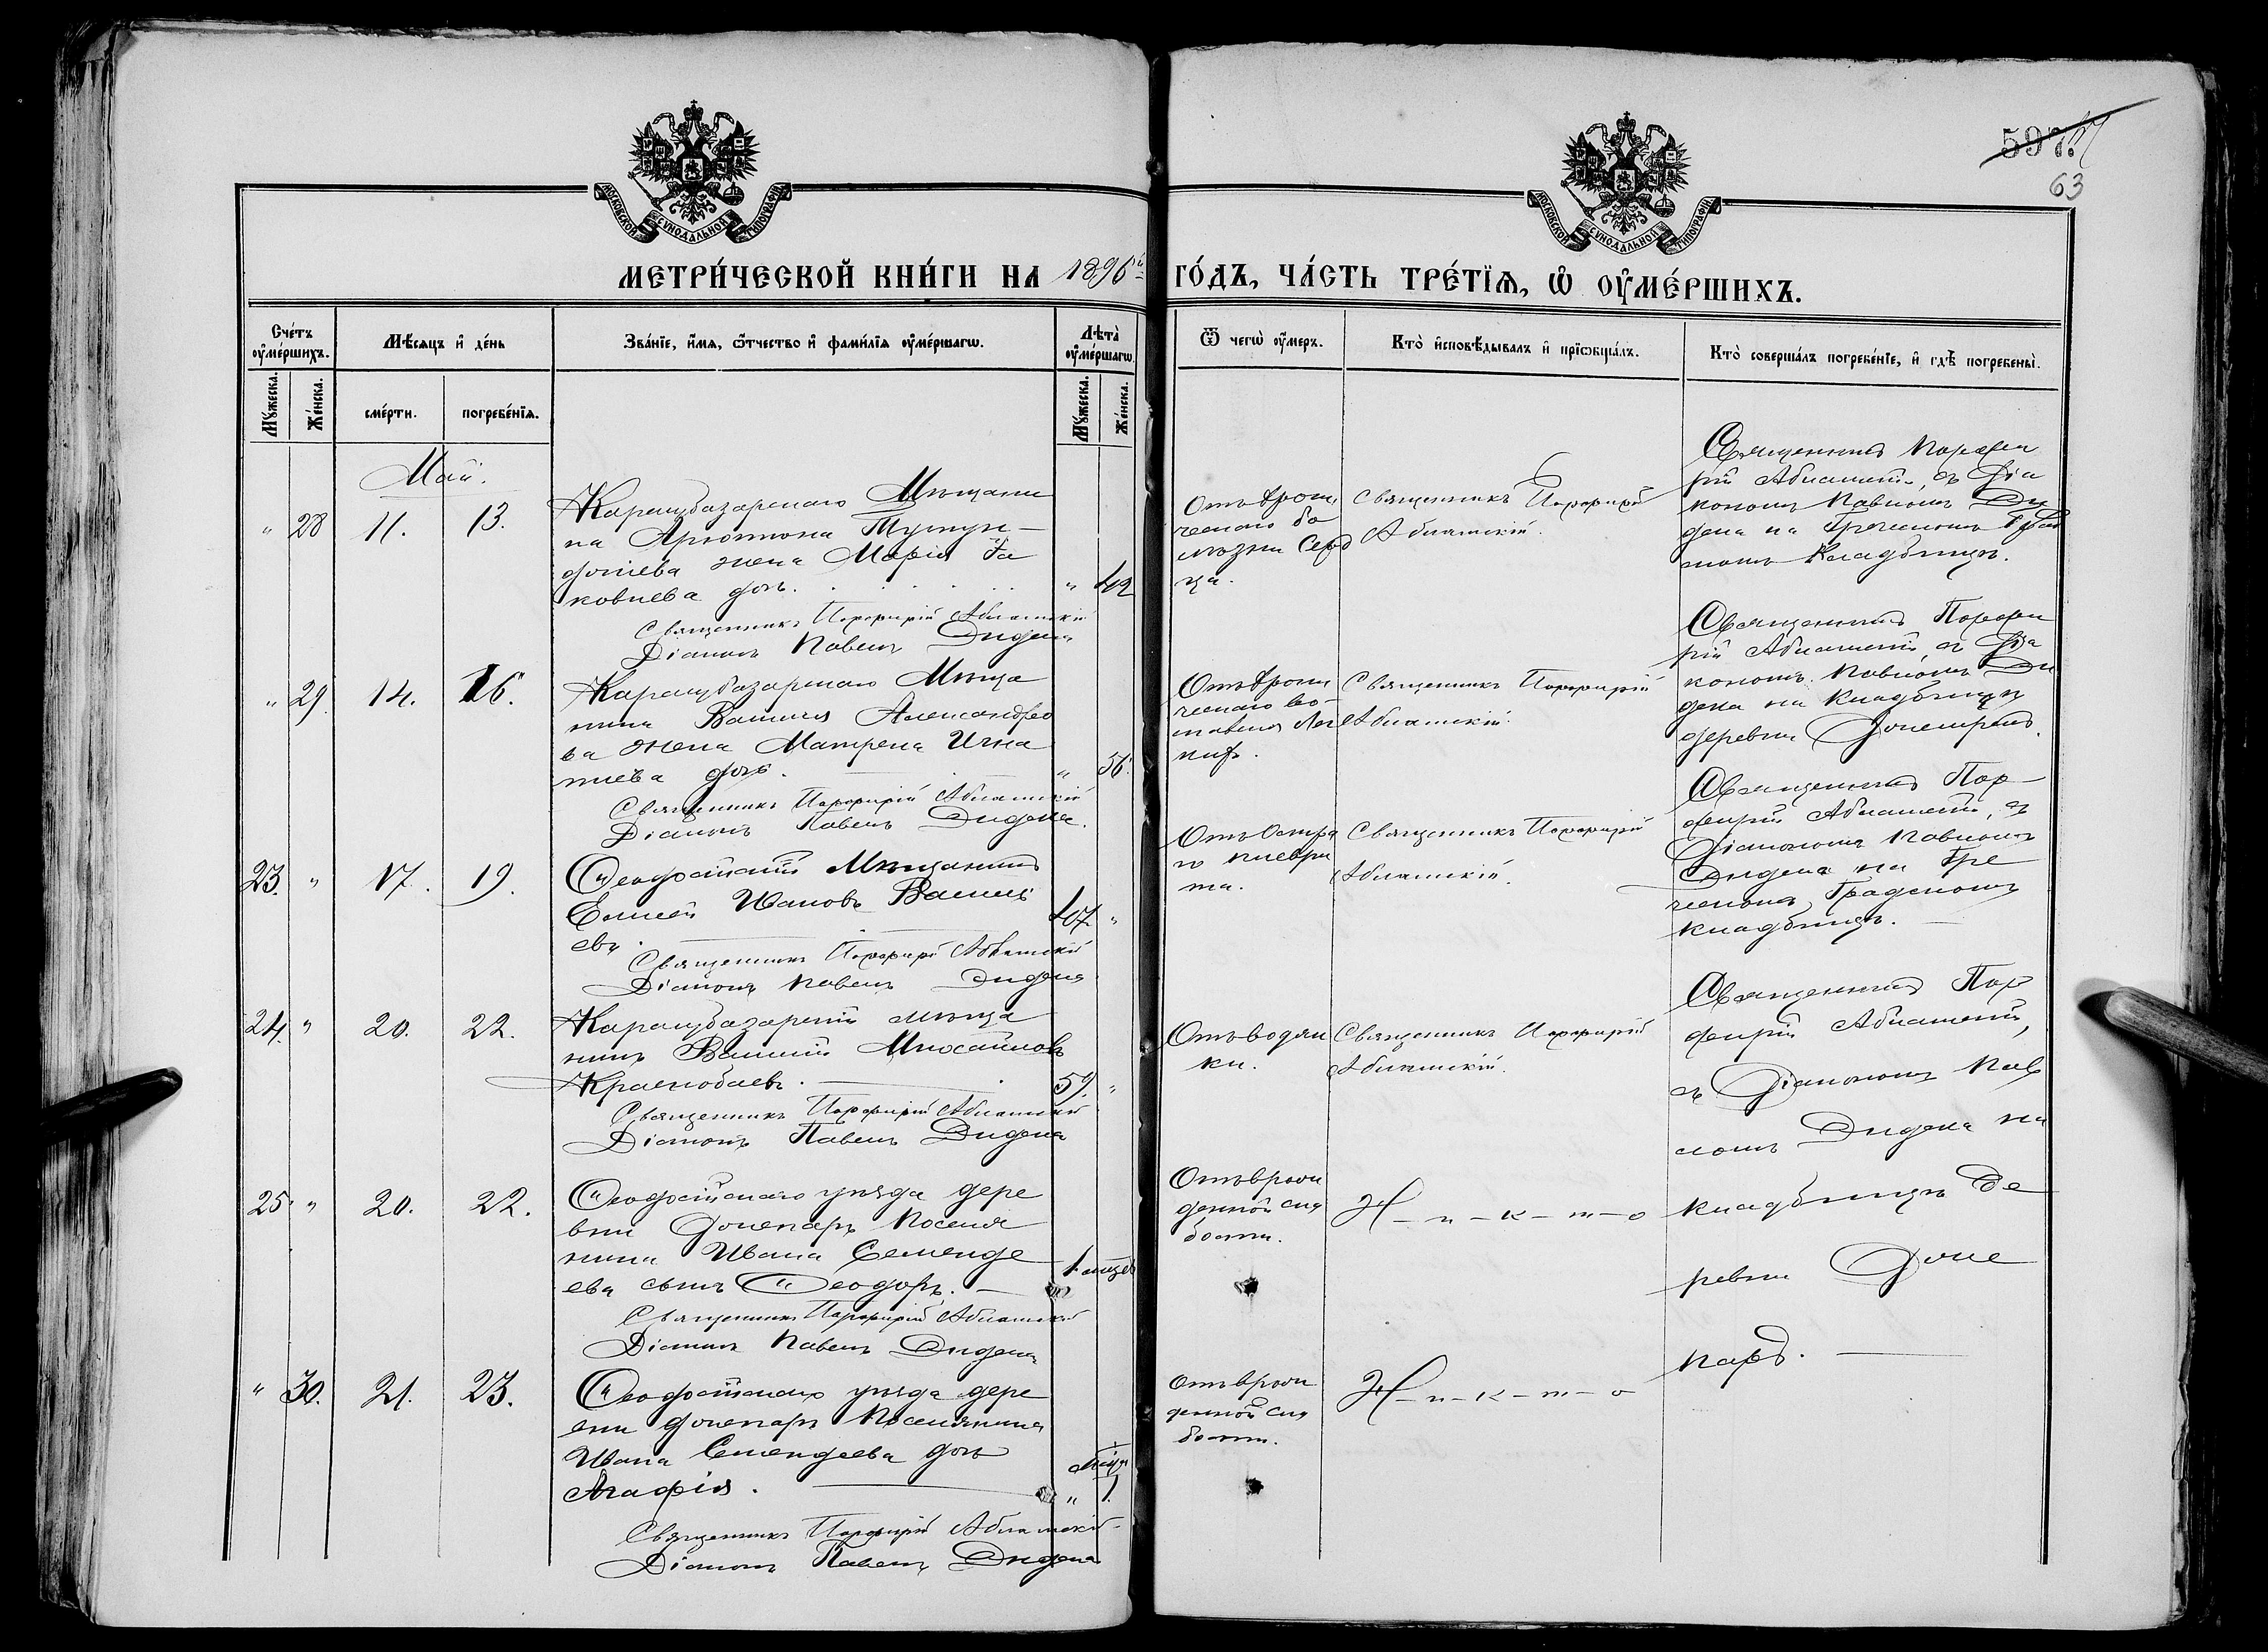 597.
63
МОСКОВСКОЙ СѴНОДАЛЬНОЙ ТИПОГРАФІИ
МОСКОВСКОЙ СѴНОДАЛЬНОЙ ТИПОГРАФІИ
МЕТРИ́ЧЕСКОЙ КНИ́ГИ НА 1896й ГО́ДЪ, ЧА́СТЬ ТРЕ́ТЇѦ, Ѡ҆ ОУ҆МЕ́РШИХЪ.
Сче́тъ оу҆ме́ршихъ.
Мꙋ́жеска.
Же́нска.
Мѣ́сяцъ и҆ де́нь
сме́рти.
погребе́нїѧ.
Зва́нїе, и҆́мѧ, ѻ҆́тчество и҆ фами́лїѧ оу҆ме́ршагѡ.
Лѣ́та оу҆ме́ршагѡ.
Мꙋ́жеска.
Же́нска.
Ѿ чегѡ̀ оу҆́меръ.
Кто̀ и҆сповѣ́дывалъ и҆ прїѡбща́лъ.
Кто̀ соверша́лъ погребе́нїе, и҆ гдѣ̀ погребены̀.
Май.
" 28 11. 13.
Карасубазарскаго Мѣщани
на
жена Марія Яа
ковлева дочь.
" 42
Священникъ Порфирій Абламскій
Діаконъ Павелъ Дидена
Отъ хрони
ческаго бо
лѣзни Серд
ца.
Священникъ Порфирій
Абламскій.
Священникъ Порфи
рій Абламскій, съ Діа
кономъ Павломъ Ди
дена на Греческомъ Град
скомъ Кладбищѣ.
" 29. 14. 16.
Карасубазарскаго Мѣща
нина Василия Александро
ва жена Матрена Игна
тиева дочь.
" 56.
Священникъ Порфирій Абламскій
Діаконъ Павелъ Дидена.
Отъ хрони
ческаго во-
спаления Лег
кихъ.
Священникъ Порфирій
Абламскій.
Священникъ Порфи
рій Абламскій съ Діа
кономъ Павломъ Ди
дена на Кладбищѣ
деревни
23. " 17. 19.
Ѳеодосійскій Мѣщанинъ
Елисей Ивановъ Василь
евъ.
47 "
Священникъ Порфирій Абламскій
Діаконъ Павелъ Дидена
Отъ Остра
го плеври
та.
Священникъ Порфирій
Абламскій.
Священникъ Пор
фирій Абламскій, съ
Діакономъ Павломъ
Дидена на Гре
ческомъ Градскомъ
кладбищѣ.
24. " 20. 22.
Карасубазарскій мѣща
нинъ Василий
Краснобаевъ.
59. "
Священникъ Порфирій Абламскій
Діаконъ Павелъ Дидена
Отъ водян
ки.
Священникъ Порфирій
Абламскій.
Священникъ Пор
фирій Абламскій,
съ Діакономъ Пав
ломъ Дидена на
кладбищѣ де
ревни Доле
каръ.
25. " 20. 22.
Ѳеодосійскаго уѣзда дере
вни Долекаръ Поселя
нина Ивана Семенде
ева сынъ Ѳеодоръ.
1 мѣсяцъ
Священникъ Порфирій Абламскій
Діаконъ Павелъ Дидена
Отъ врож
денной сла
бости.
Н-и-к-т-о
" 30. 21. 23.
Ѳеодосійскаго уѣзда дере
вни Долекаръ Поселянина
Ивана Семендеева дочь
Агафія.
" 1.
Священникъ Порфирій Абламскій
Діаконъ Павелъ Дидена
Отъ врож
денной сла
бости.
Н-и-к-т-о